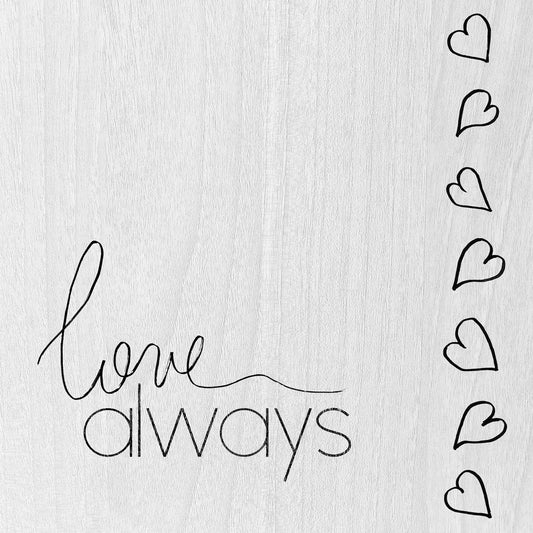 love
always